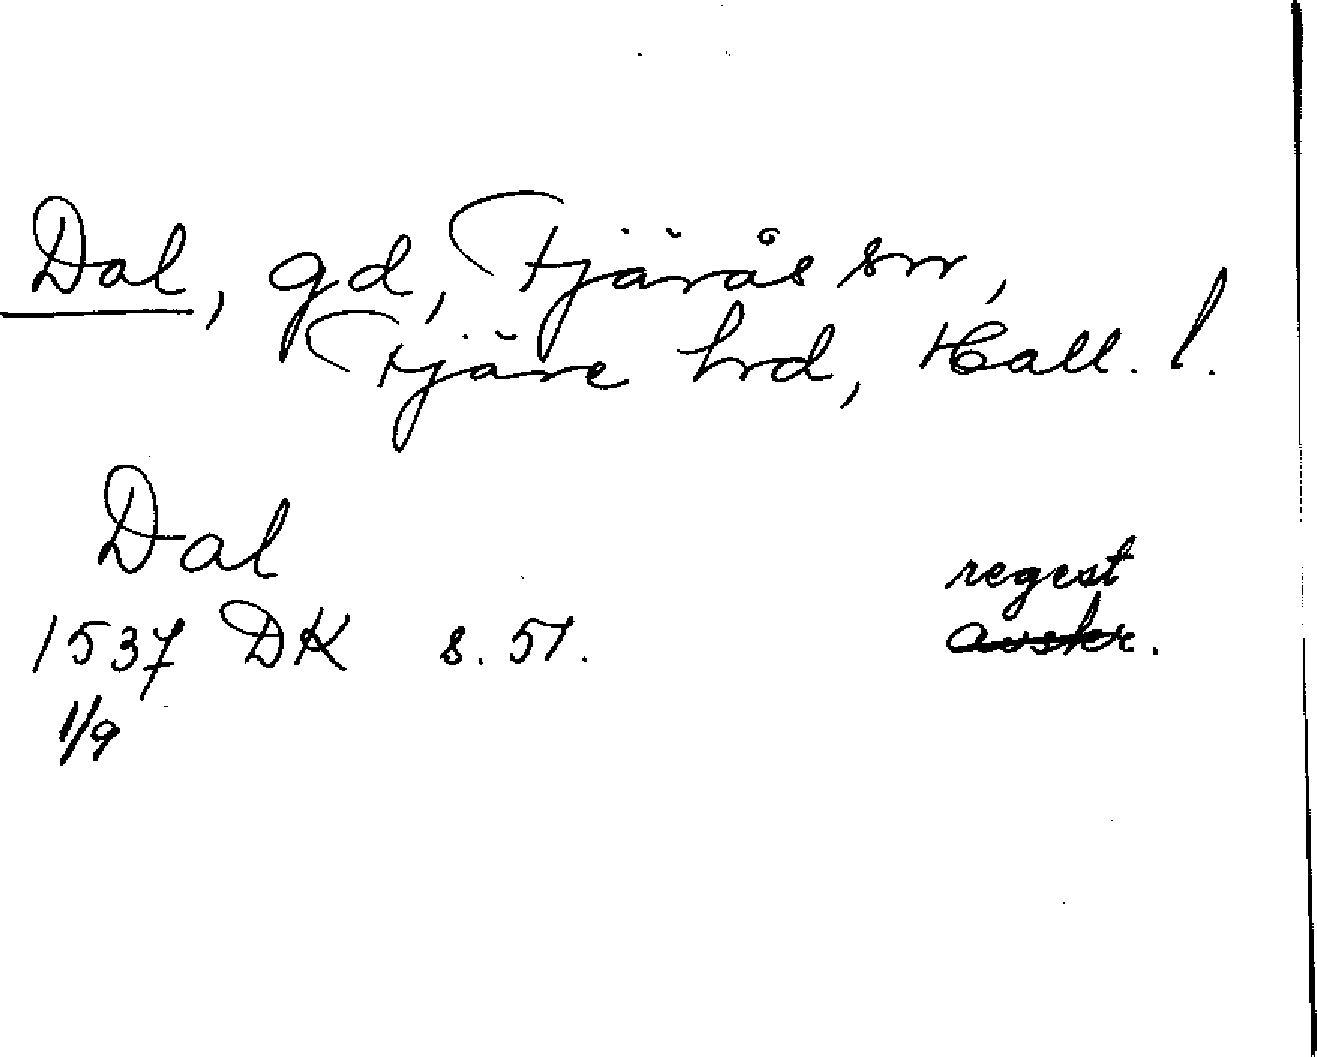 Dal, gd, Fjärås sn,
Fjäre hrd, Hall. l.
Dal
regest
1537 DK s. 51. avskr.
1/9